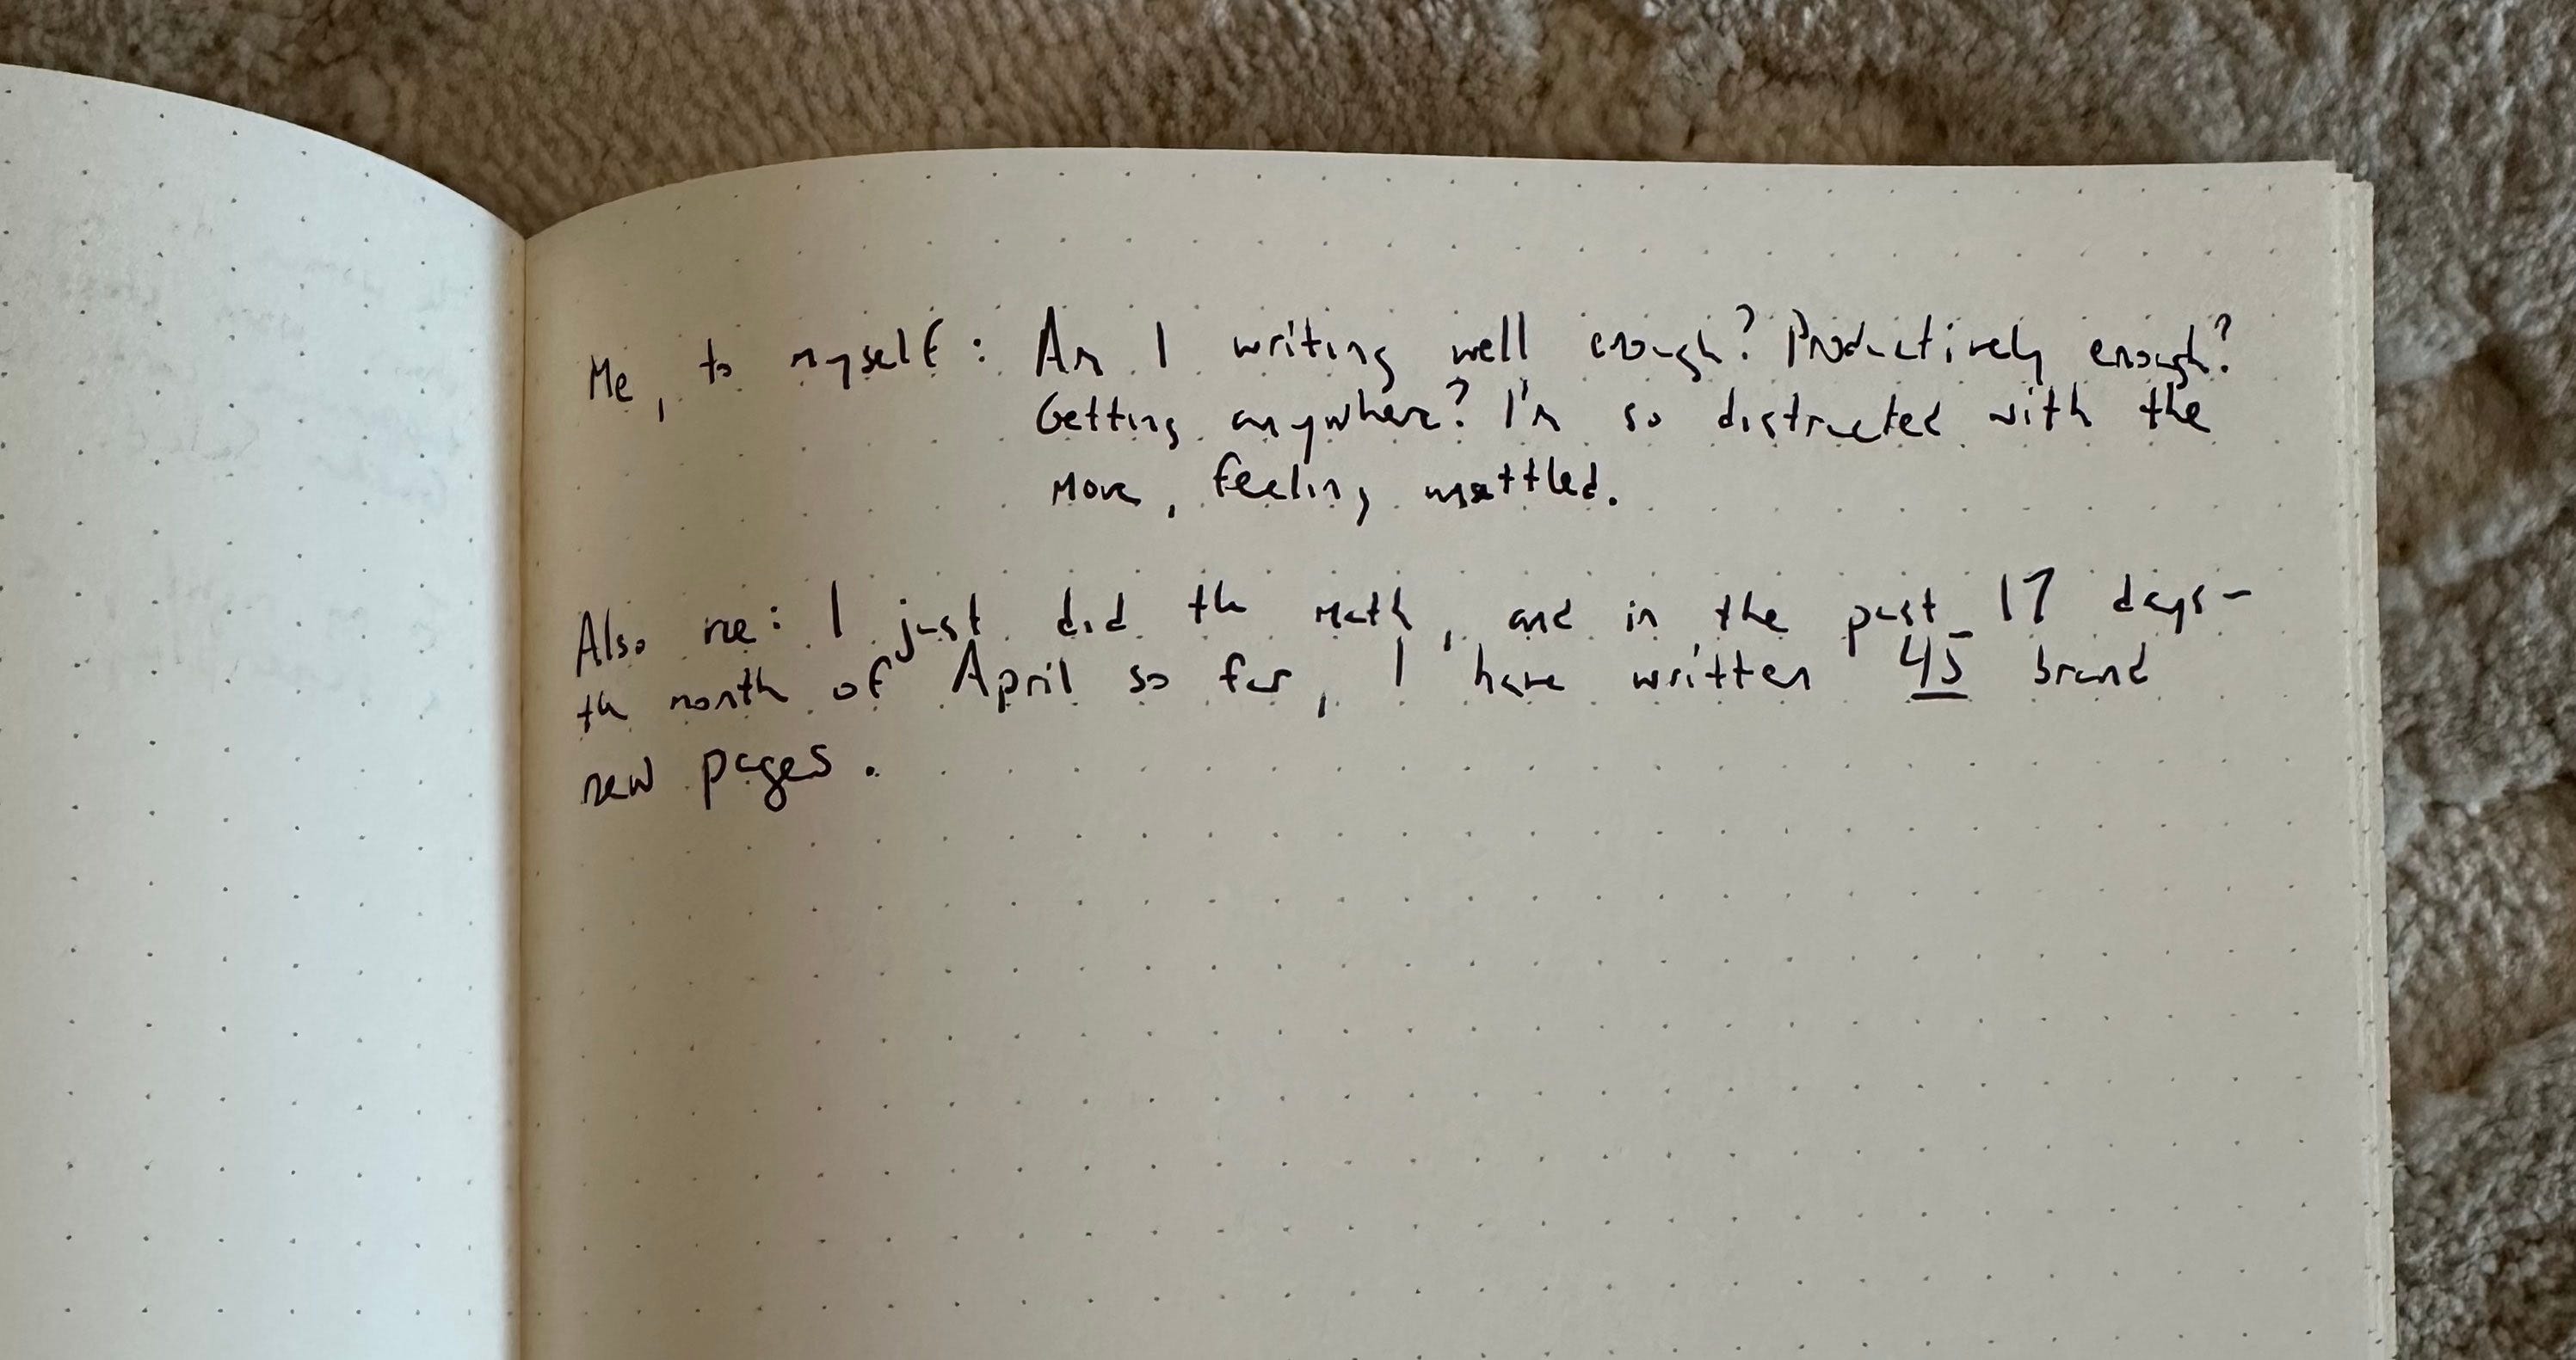 Me, to myself: Am I writing well enough? Productively enough?
Getting anywhere? I'm so distracted with the
move, feeling unsettled.
Also me: I just did the math, and in the past 17 days-
the month of April so far, I have written 45 brand
new pages.